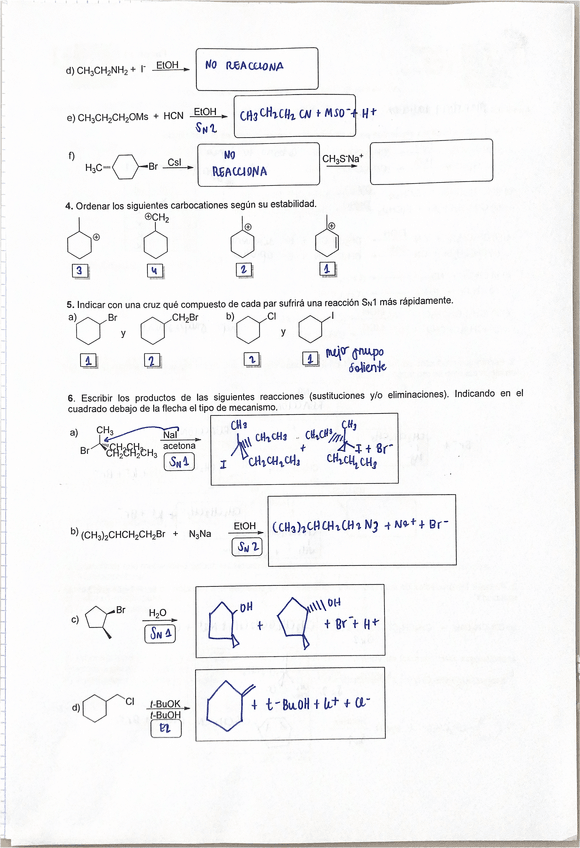 d) CH3CH2NH2 + I- EtOH NO REACCIONA
e) CH3CH2CH2OMs + HCN EtOH SN2 CH3CH2CH2CN + MSO- + H+
f) H3C Br CsI NO REACCIONA CH3S-Na+
4. Ordenar los siguientes carbocationes según su estabilidad.
⊕CH2 ⊕ ⊕ ⊕
3 4 2 1
5. Indicar con una cruz qué compuesto de cada par sufrirá una reacción SN1 más rápidamente.
a) Br y CH2Br b) Cl y I
1 2 2 1 mejor grupo saliente
6. Escribir los productos de las siguientes reacciones (sustituciones y/o eliminaciones). Indicando en el
cuadrado debajo de la flecha el tipo de mecanismo.
a) CH3 Br CH2CH3 CH2CH2CH3 NaI acetona SN1 CH3 CH2CH3 I CH2CH2CH3 + CH3 CH2CH3 I CH2CH2CH3 + Br-
b) (CH3)2CHCH2CH2Br + N3Na EtOH SN2 (CH3)2CHCH2CH2N3 + Na+ + Br-
c) Br H2O SN1 OH + OH + Br- + H+
d) Cl t-BuOK t-BuOH E2 + t-BuOH + K+ + Cl-